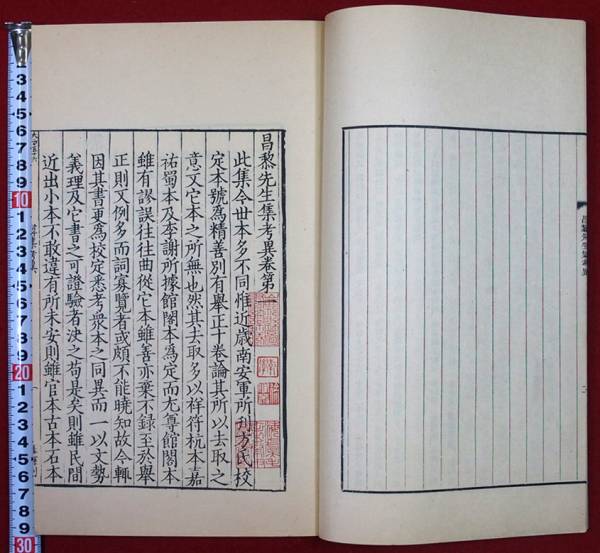 昌黎先生集考異卷第一
此集今世本多不同惟近歲南安軍所刊方氏校
定本號爲精善別有舉正十卷論其所以去取之
意又它本之所無也然其去取多以祥符杭本嘉
祐蜀本及李謝所據館閣本爲定而尤尊館閣本
雖有謬誤往往曲從它本雖善亦棄不錄至於舉
正則又例多而詞寡覽者或頗不能曉知故今輒
因其書更爲校定悉考衆本之同異而一以文勢
義理及它書之可證驗者決之苟是矣則雖民間
近出小本不敢違有所未安則雖官本古本石本
2
3
4
5
6
7
8
9
10
1
2
3
4
5
6
7
8
9
20
1
2
3
4
5
6
7
8
9
30